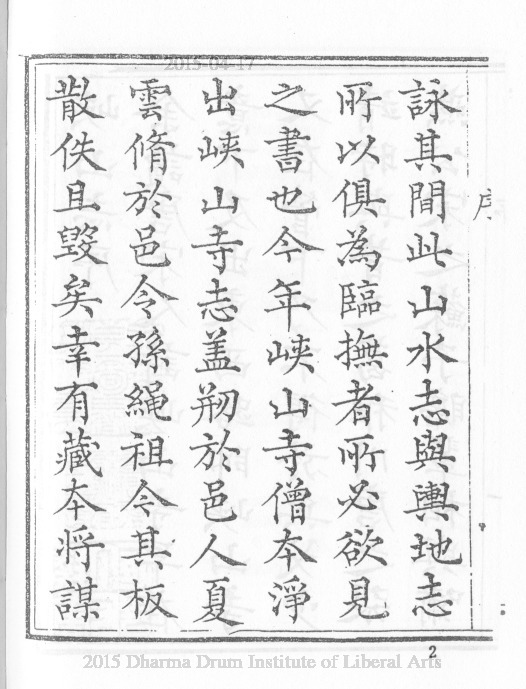 2015-04-17
序
詠其間此山水志與輿地志
所以俱為臨撫者所必欲見
之書也今年峽山寺僧本淨
出峽山寺志盖刱於邑人夏
雲脩於邑令孫繩祖今其板
散佚且毀矣幸有藏本将謀
2
2015 Dharma Drum Institute of Liberal Arts